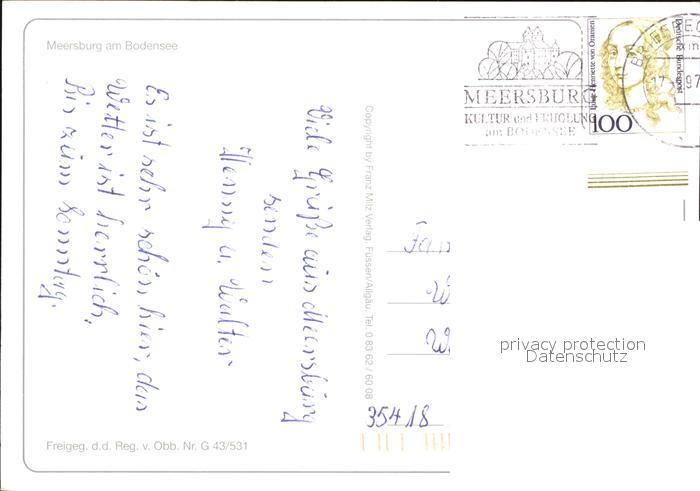 Meersburg am Bodensee
MEERSBURG
KULTUR und ERHOLUNG
am BODENSEE
Deutsche Bundespost
Luise Henriette von Oranien
100
17
97
Viele Grüße aus Meersburg
senden
Henny u. Walter
Es ist sehr schön hier, das
Wetter ist herrlich.
Bis zum Sonntag.
Copyright by Franz Milz Verlag, Füssen/Allgäu, Tel. 0 83 62 / 60 08
Fam
W
W
privacy protection
Datenschutz
35418
Freigeg. d.d. Reg. v. Obb. Nr. G 43/531